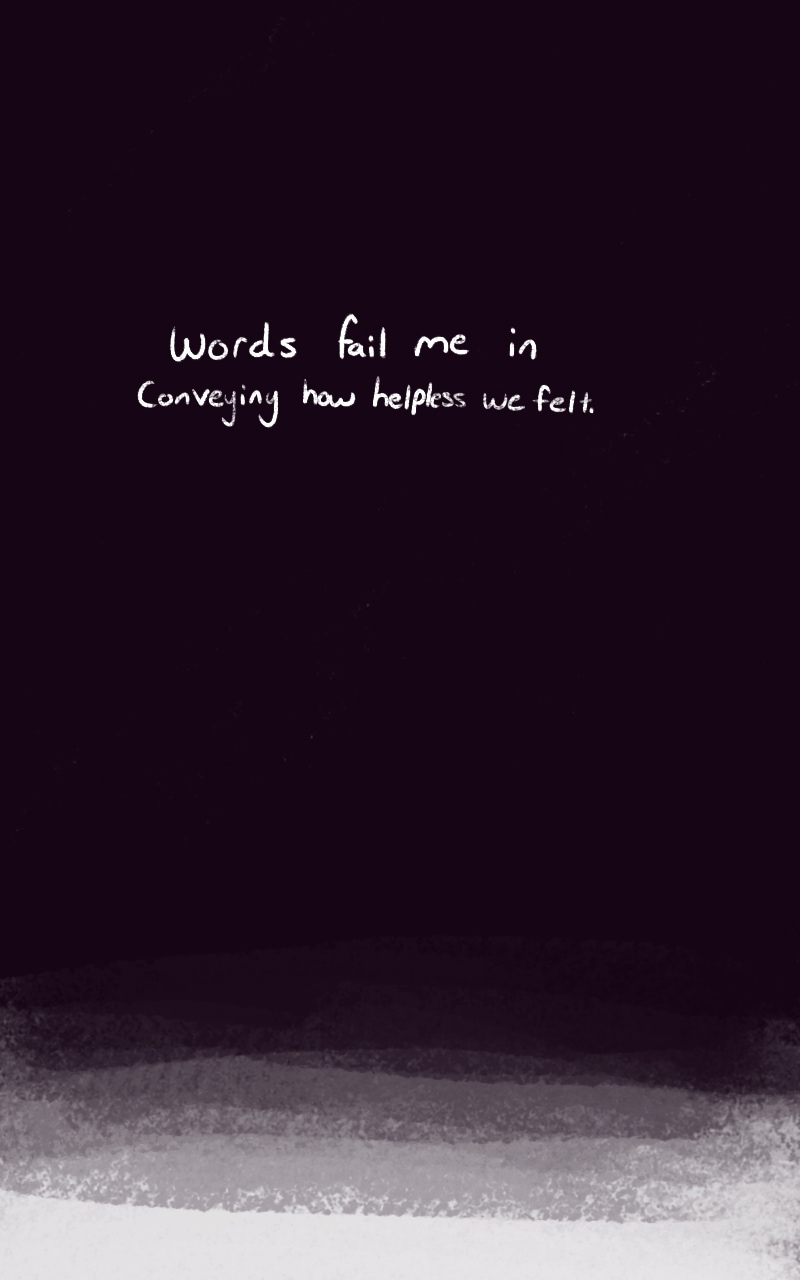 Words fail me in
Conveying how helpless we felt.